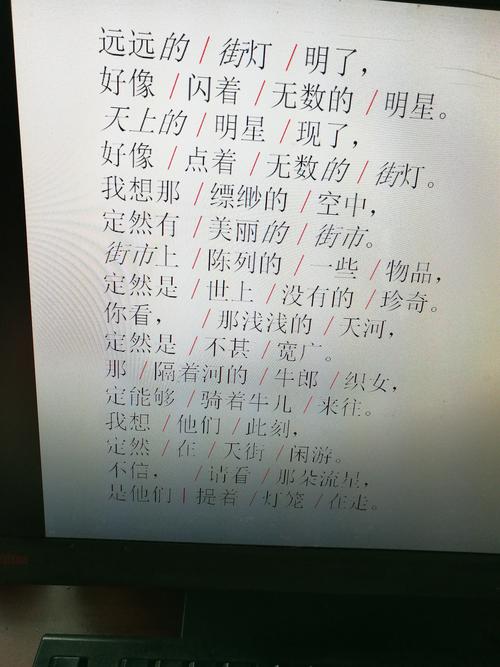 远远的 / 街灯 / 明了，
好像 / 闪着 / 无数的 / 明星。
天上的 / 明星 / 现了，
好像 / 点着 / 无数的 / 街灯。
我想那 / 缥缈的 / 空中，
定然有 / 美丽的 / 街市。
街市上 / 陈列的 / 一些 / 物品，
定然是 / 世上 / 没有的 / 珍奇。
你看， / 那浅浅的 / 天河，
定然是 / 不甚 / 宽广。
那 / 隔着河的 / 牛郎 / 织女，
定能够 / 骑着牛儿 / 来往。
我想 / 他们 / 此刻，
定然 / 在 / 天街 / 闲游。
不信， / 请看 / 那朵流星，
是他们 / 提着 / 灯笼 / 在走。